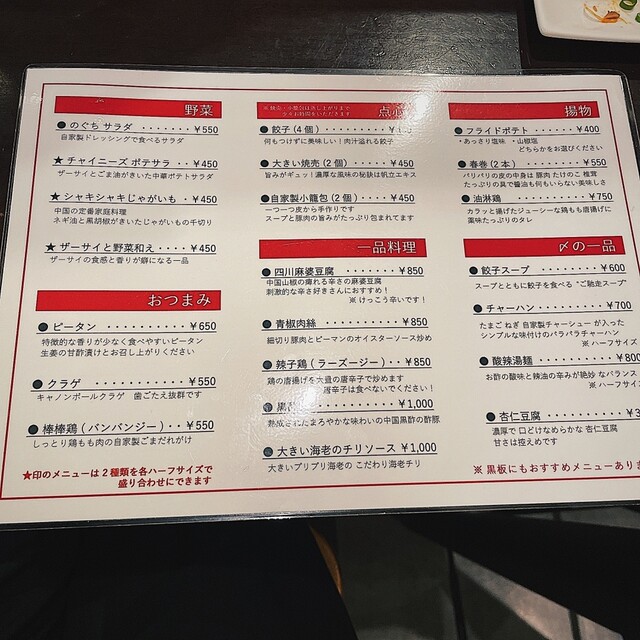 野菜
● のぐち サラダ ・・・・・・・ ¥550
自家製ドレッシングで食べるサラダ
★ チャイニーズ ポテサラ ・・・ ¥450
ザーサイとごま油がきいた中華ポテサラダ
★ シャキシャキじゃがいも ・・・ ¥450
中国の定番家庭料理
ネギ油と黒胡椒がきいたじゃがいもの千切り
★ ザーサイと野菜和え ・・・ ¥450
ザーサイの食感と香りが癖になる一品
おつまみ
● ピータン ・・・・・・・・ ¥650
特徴的な香りが少なく食べやすいピータン
生姜の甘酢漬けとお召し上がりください
● クラゲ ・・・・・・・・・ ¥550
キャノンボールクラゲ 歯ごたえ抜群です
● 棒棒鶏 (バンバンジー) ・・ ¥550
しっとり鶏もも肉の自家製ごまだれがけ
★印のメニューは2種類を各ハーフサイズで
盛り合わせにできます
点心
● 餃子 (4個)
何もつけずに美味しい!肉汁溢れる餃子
● 大きい焼売 (2個) ・・・・・ ¥450
旨みがギュッ!濃厚な風味の秘訣は帆立エキス
● 自家製小籠包 (2個) ・・・・ ¥450
一つ一つ皮から手作りです
スープと豚肉の旨みがたっぷり包まれてます
一品料理
● 四川麻婆豆腐 ・・・・・・・ ¥850
中国山椒の痺れる辛さの麻婆豆腐
刺激的な辛さ好きさんにおすすめ!
※けっこう辛いです!
● 青椒肉絲 ・・・・・・・・ ¥850
細切り豚肉とピーマンのオイスターソース炒め
● 辣子鶏 (ラーズージー) ・・ ¥850
鶏の唐揚げを大量の唐辛子で炒めます
唐辛子は食べないでください!
¥1,000
熟成されたまろやかな味わいの中国黒酢の酢豚
● 大きい海老のチリソース ¥1,000
大きいプリプリ海老の こだわり海老チリ
揚物
● フライドポテト ・・・・・ ¥400
・あっさり塩味 ・山椒塩
どちらかをお選びください
● 春巻 (2本) ・・・・・・・ ¥550
パリパリの皮の中身は 豚肉 たけのこ 椎茸
たっぷりの具で醤油も何もいらない美味しさ
● 油淋鶏 ・・・・・・・・・ ¥750
カラッと揚げたジューシーな鶏もも唐揚げに
薬味たっぷりのタレ
〆の一品
● 餃子スープ ・・・・・・・ ¥600
スープとともに餃子を食べる "ご馳走スープ"
● チャーハン ・・・・・・・ ¥700
たまご ねぎ 自家製チャーシュー が入った
シンプルな味付けのパラパラチャーハン
※ ハーフサイズ
● 酸辣湯麺 ・・・・・・・・ ¥800
お酢の酸味と辣油の辛みが絶妙 なバランス
※ ハーフサイズ
● 杏仁豆腐 ・・・・・・・・ ¥3
濃厚で 口どけなめらかな 杏仁豆腐
甘さは控えめです
※ 黒板にもおすすめメニューあり